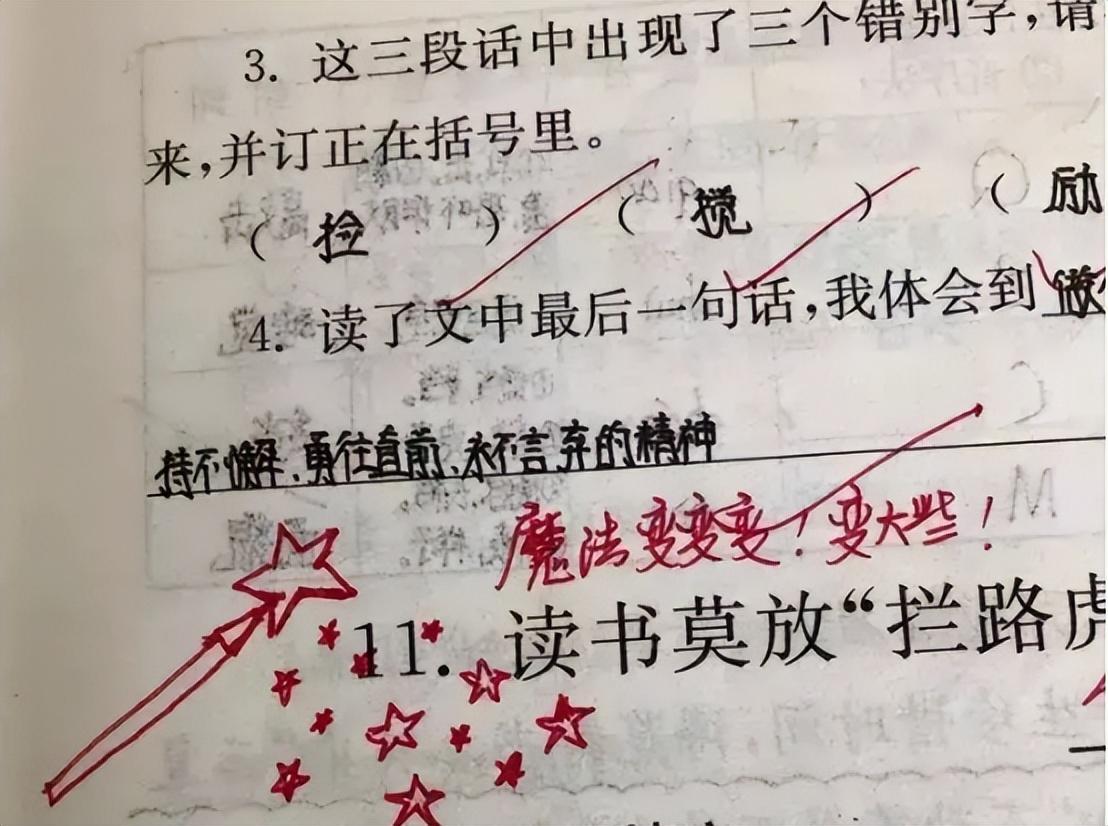 3. 这三段话中出现了三个错别字,请
来,并订正在括号里。
( 捡 ) ( 搅 ) ( 励
4. 读了文中最后一句话,我体会到 做
持不懈、勇往直前、永不言弃的精神
魔法变变变!变大些!
11. 读书莫放“拦路虎